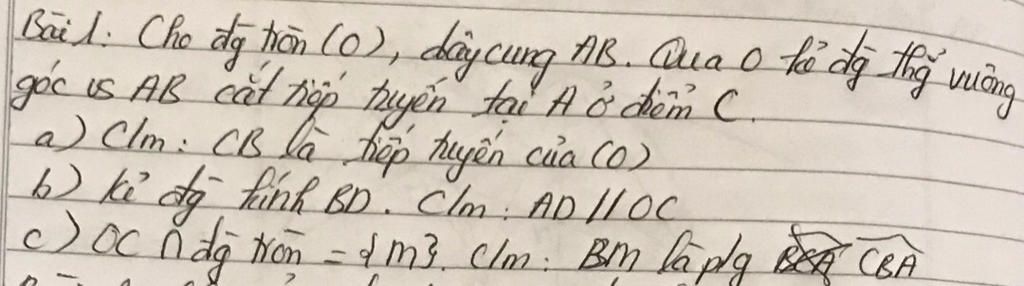 Bài 1: Cho đg tròn (O), dây cung AB. Qua O kẻ đg thg vuông
góc vs AB cắt tiếp tuyến tại A ở điểm C.
a) C/m: CB là tiếp tuyến của (O)
b) kẻ đg kính BD. C/m: AD // OC
c) OC ∩ đg tròn = {M}. C/m: BM là p/g CBA